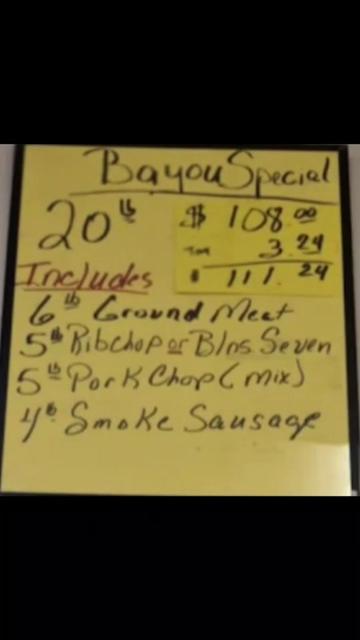 Bayou Special
20 lb
$ 108.00
Tax 3.24
$ 111.24
Includes
6 lb Ground Meat
5 lb Ribchop or Blns. Seven
5 lb Pork Chop (mix)
4 lb Smoke Sausage